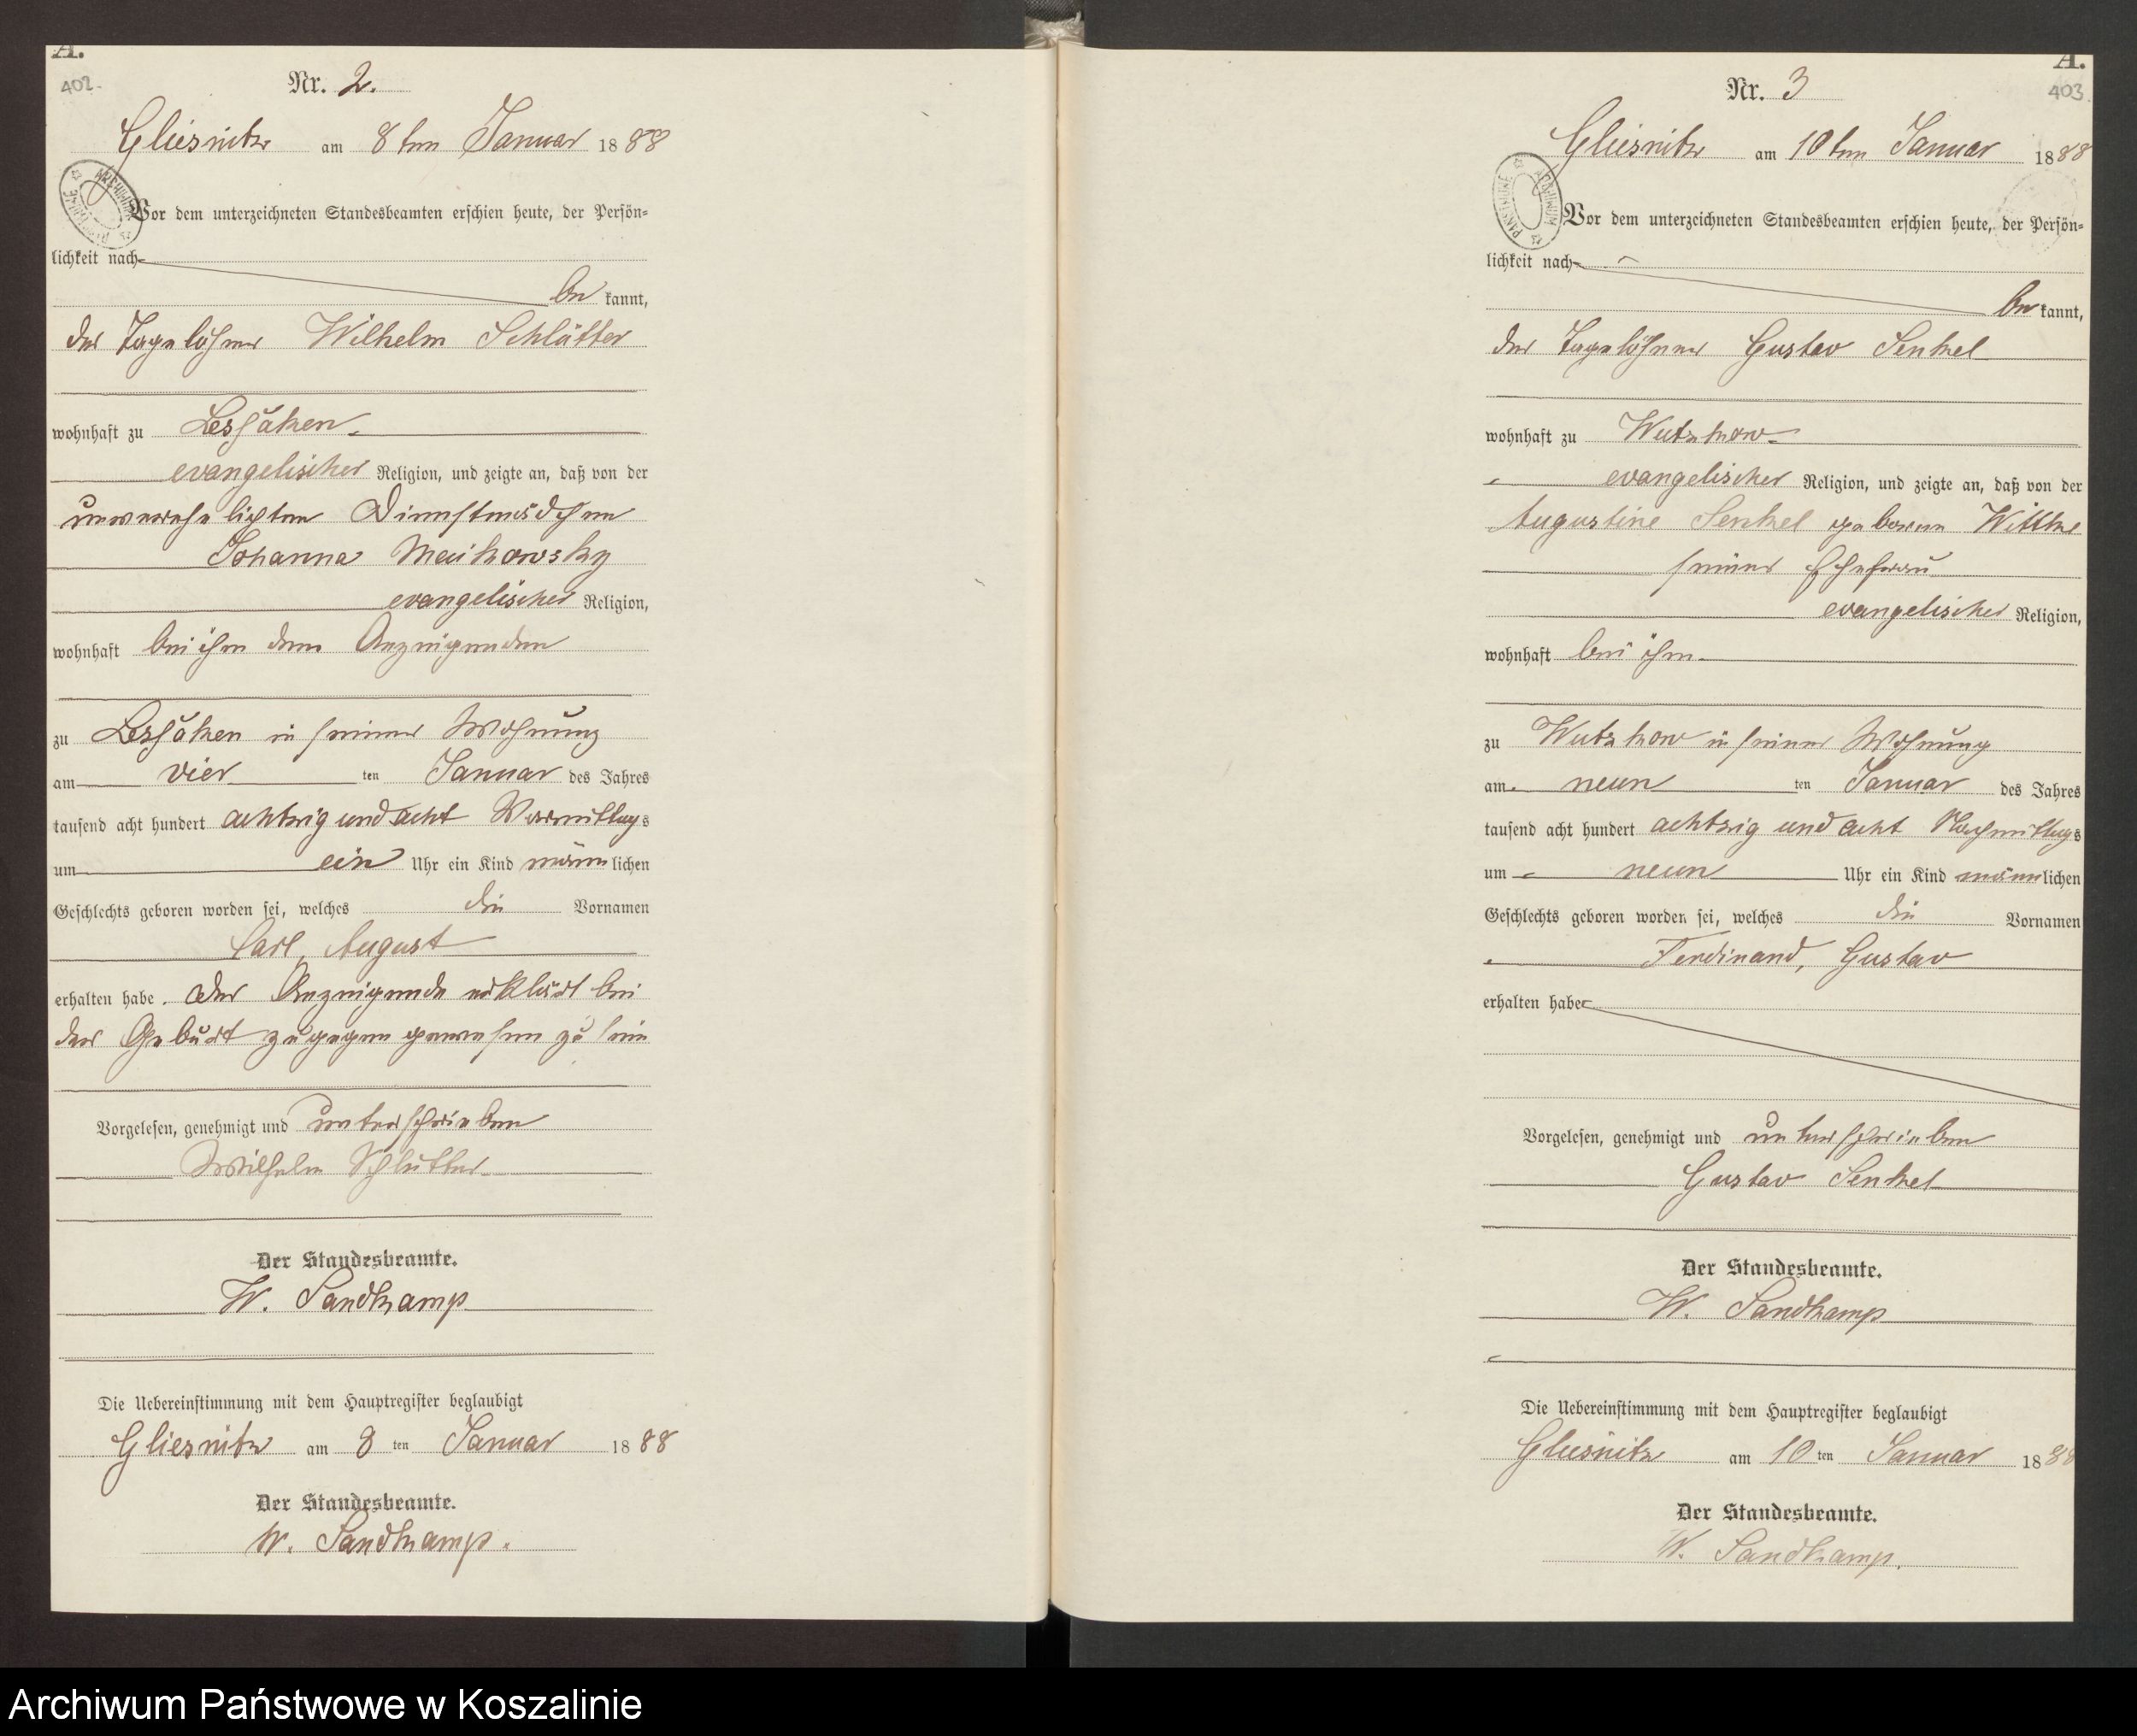 A.
402.
Nr. 2.
Gliesnitz am 8ten Januar 1888
Vor dem unterzeichneten Standesbeamten erschien heute, der Persön=
lichkeit nach
be kannt,
der Tagelöhner Wilhelm Schlütter
wohnhaft zu Lessaken
evangelischer Religion, und zeigte an, daß von der
unverehelichten Dienstmädchen
Johanna Maikowsky
evangelischer Religion,
wohnhaft bei ihm dem Anzeigenden
zu Lessaken in seiner Wohnung
am vier ten Januar des Jahres
tausend acht hundert achtzig und acht Vormittags
um ein Uhr ein Kind männlichen
Geschlechts geboren worden sei, welches die Vornamen
Carl, August
erhalten habe. Der Anzeigende erklärt bei
der Geburt zugegen gewesen zu sein
Vorgelesen, genehmigt und unterschrieben
Wilhelm Schlütter
Der Standesbeamte.
W. Sandkamp
Die Uebereinstimmung mit dem Hauptregister beglaubigt
Gliesnitz am 8 ten Januar 1888
Der Standesbeamte.
W. Sandkamp.
A.
403.
Nr. 3
Gliesnitz am 10ten Januar 1888
ARCHIWUM PAŃSTWOWE
Vor dem unterzeichneten Standesbeamten erschien heute, der Persön=
lichkeit nach
be kannt,
der Tagelöhner Gustav Senkel
wohnhaft zu Wutzkow
evangelischer Religion, und zeigte an, daß von der
Augustine Senkel geborene Wittke
seiner Ehefrau
evangelischer Religion,
wohnhaft bei ihm
zu Wutzkow in seiner Wohnung
am neun ten Januar des Jahres
tausend acht hundert achtzig und acht Nachmittags
um neun Uhr ein Kind männlichen
Geschlechts geboren worden sei, welches die Vornamen
Ferdinand, Gustav
erhalten habe
Vorgelesen, genehmigt und unterschrieben
Gustav Senkel
Der Standesbeamte.
W. Sandkamp
Die Uebereinstimmung mit dem Hauptregister beglaubigt
Gliesnitz am 10 ten Januar 1888
Der Standesbeamte.
W. Sandkamp.
Archiwum Państwowe w Koszalinie